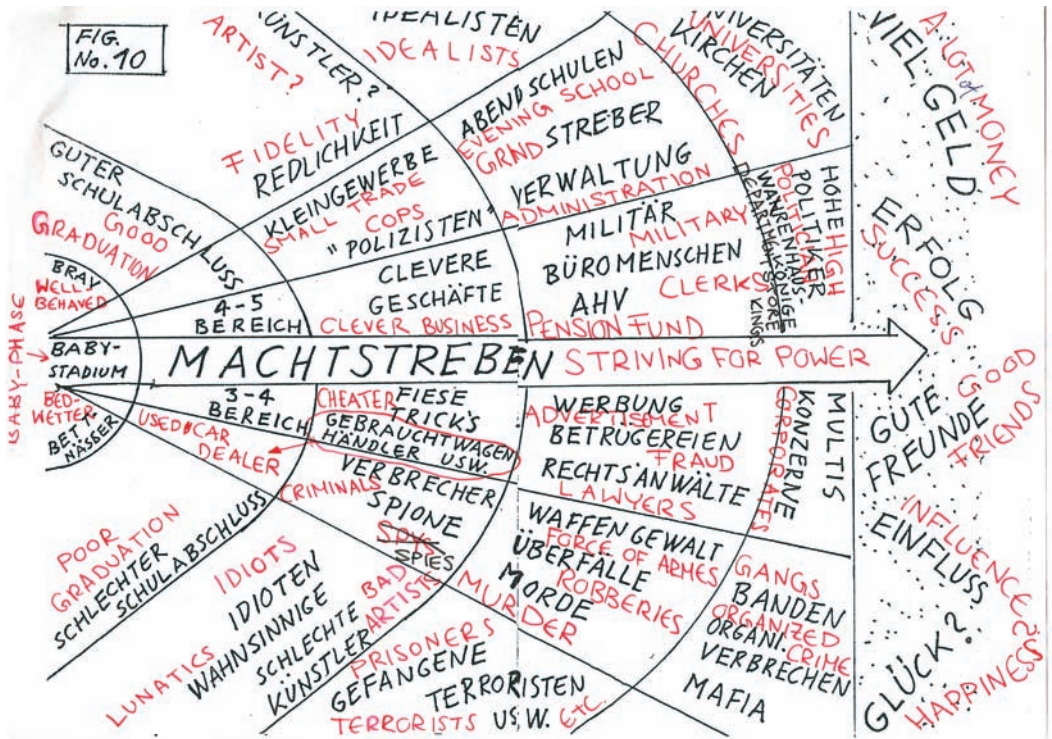 FIG.
No. 10
KÜNSTLER?
ARTIST?
IDEALISTEN
IDEALISTS
UNIVERSITÄTEN
UNIVERSITIES
KIRCHEN
CHURCHES
VIEL GELD
A LOT of MONEY
GUTER
SCHULABSCHLUSS
GOOD
GRADUATION
FIDELITY
REDLICHKEIT
ABENDSCHULEN
EVENING SCHOOL
STREBER
GRIND
KLEINGEWERBE
SMALL TRADE
COPS
"POLIZISTEN"
VERWALTUNG
ADMINISTRATION
MILITÄR
MILITARY
BÜROMENSCHEN
CLERKS
AHV
PENSION FUND
HOHE HIGH
POLITIKER
POLITICIAN
WARENHAUSKÖNIGE
DEPARTMENT STORE KINGS
ERFOLG
SUCCESS
BRAV
WELL-
BEHAVED
4-5
BEREICH
CLEVERE
GESCHÄFTE
CLEVER BUSINESS
BABY-PHASE
BABY-
STADIUM
MACHTSTREBEN STRIVING FOR POWER
BED-
WETTER
BETT-
NÄSSER
3-4
BEREICH
USED CAR
DEALER
CHEATER
FIESE
TRICKS
GEBRAUCHTWAGEN
HÄNDLER USW.
VERBRECHER
CRIMINALS
SPIONE
SPYS
SPIES
WERBUNG
ADVERTISEMENT
BETRÜGEREIEN
FRAUD
RECHTSANWÄLTE
LAWYERS
MULTIS
KONZERNE
CORPORATES
GUTE
FREUNDE
GOOD
FRIENDS
POOR
GRADUATION
SCHLECHTER
SCHULABSCHLUSS
IDIOTS
IDIOTEN
WAHNSINNIGE
LUNATICS
SCHLECHTE
KÜNSTLER
BAD
ARTISTS
WAFFENGEWALT
FORCE OF ARMES
ÜBERFÄLLE
ROBBERIES
MORDE
MURDER
PRISONERS
GEFANGENE
TERRORISTEN
TERRORISTS
USW. ETC.
GANGS
BANDEN
ORGANIZED
ORGANI.
CRIME
VERBRECHEN
MAFIA
EINFLUSS
INFLUENCE
GLÜCK?
HAPPINESS?